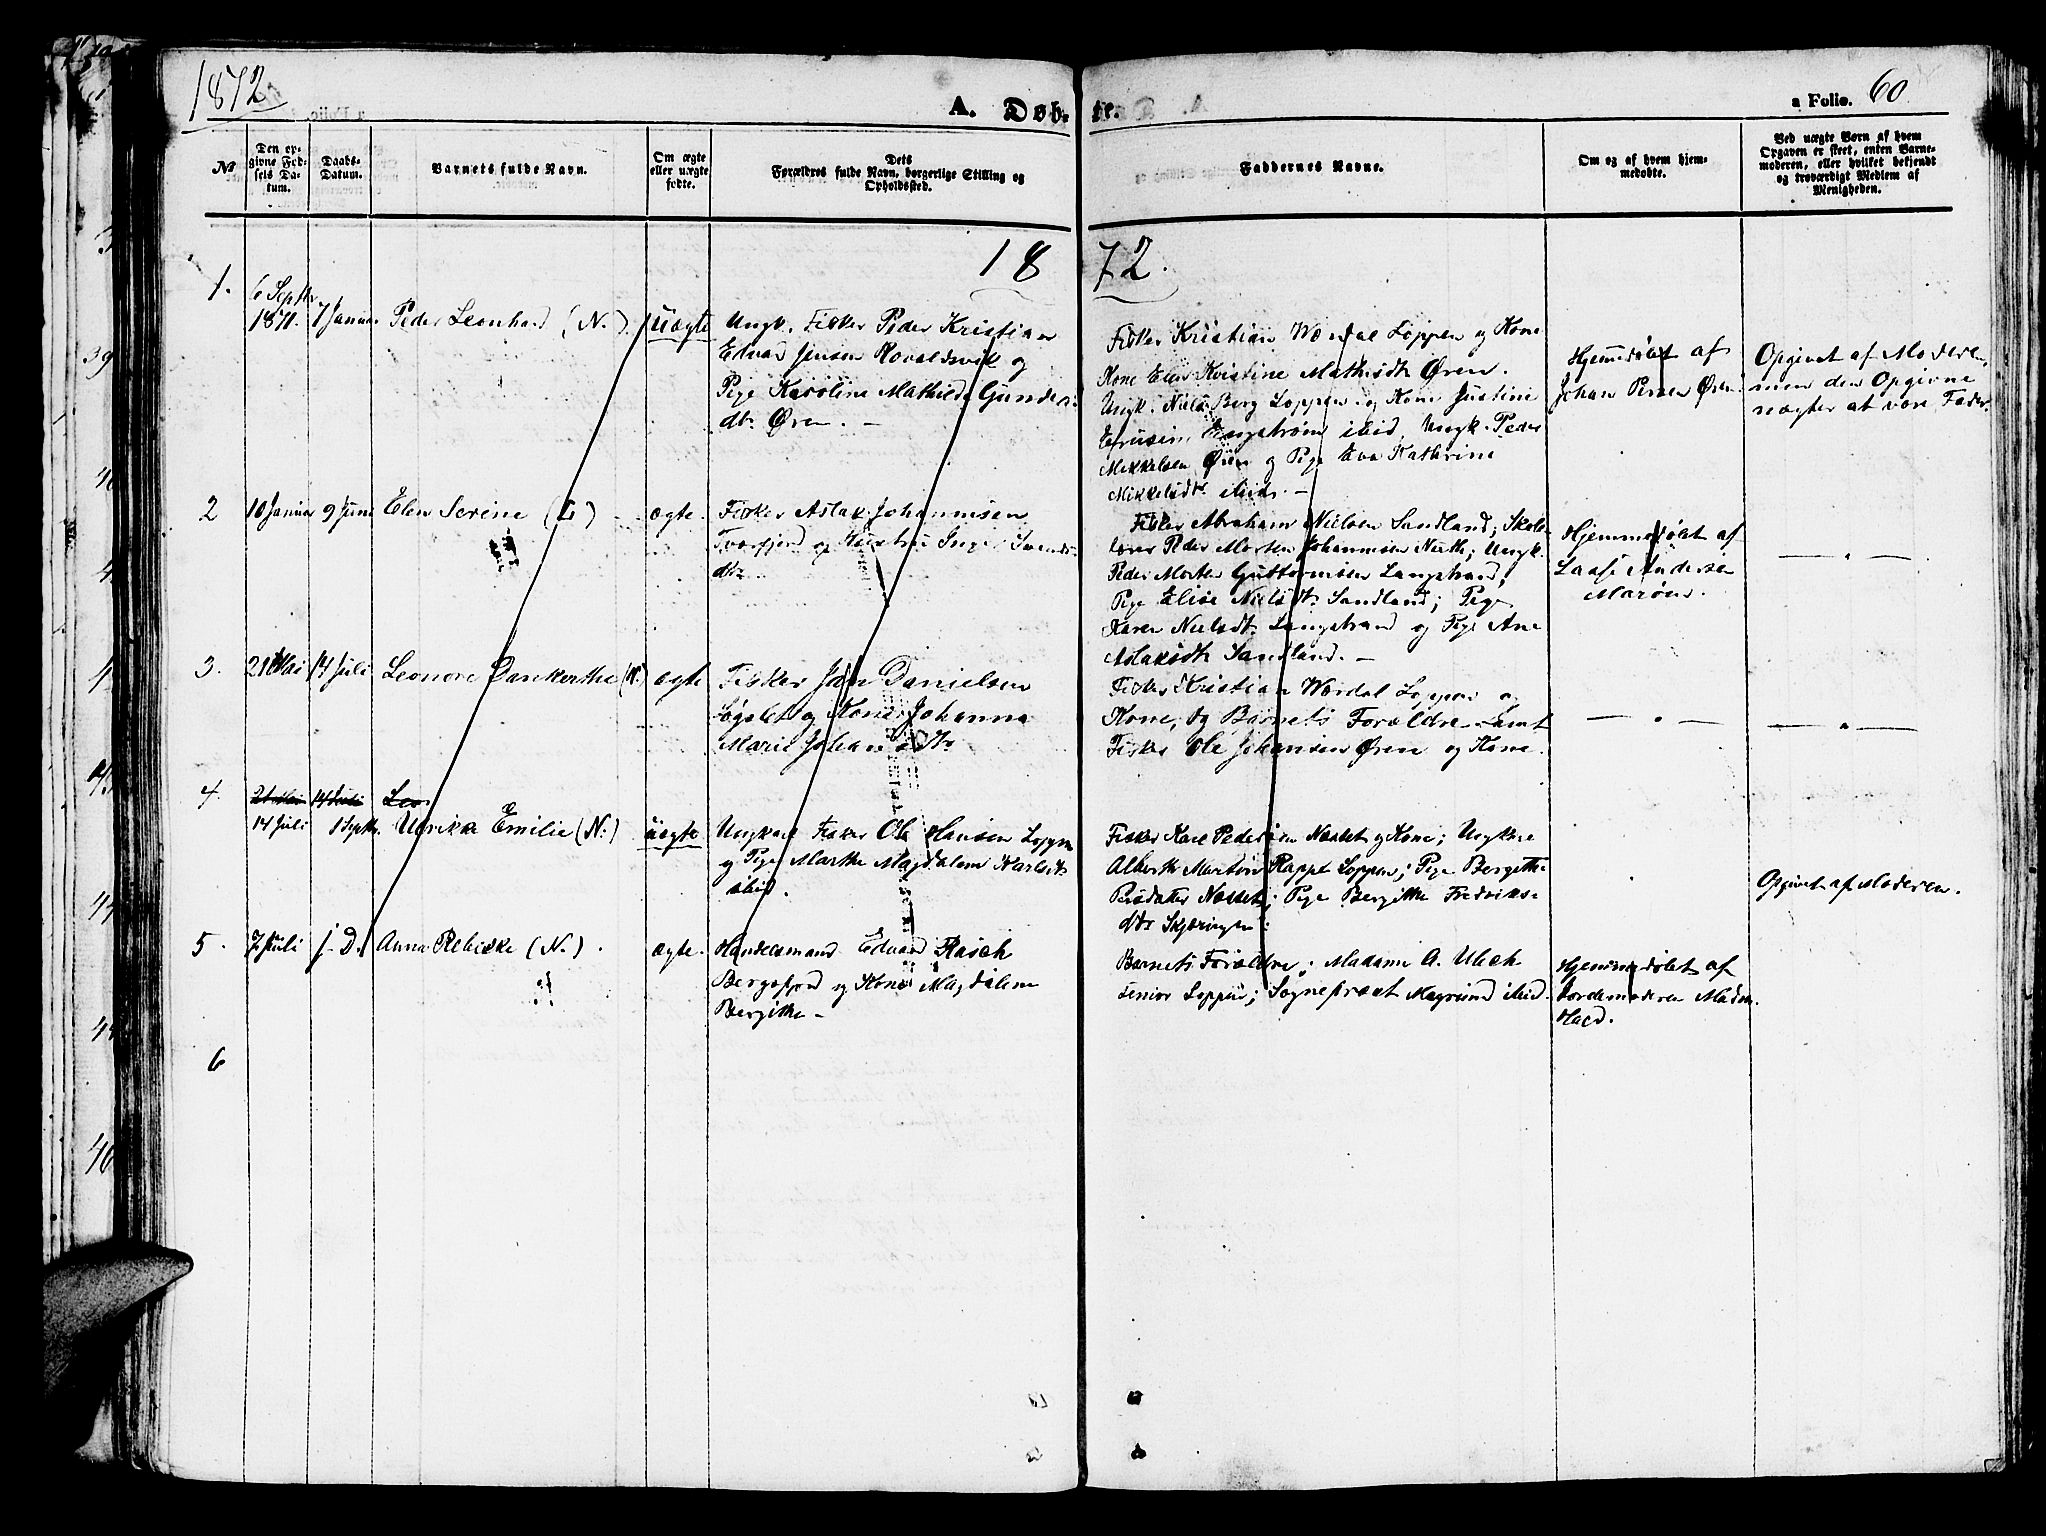 1872.
A. Døb- te.
a Folio. 60
№
Den op-
givne Fød-
sels Da-
tum.
Daabs-
Datum.
Barnets fulde Navn.
Om ægte
eller uægte
fødte.
Dets
Forældres fulde Navn, borgerlige Stilling og
Opholdssted.
Faddernes Navne.
Om og af hvem hjem-
medøbte.
Ved uægte Børn af hvem
Opgaven er skeet, enten Barne-
moderen, eller hvilket bekjendt
og troværdigt Medlem af
Menigheden.
18 72.
1.
6 Septbr
1871.
7 Januar
Peder Leonhard (N.)
uægte
Ungk. Fisker Peder Kristian
Edvard Jensen og
Pige Karoline Mathilde Gunders-
dtr. Øren. —
Fisker Kristian Wordal Loppen og Kone
Kone Elen Kristine Mathisdtr Øren.
Ungk. Niels Berg Loppen og Kone Justine
Engstrøm ibid, Ungk. Peder
Mikkelsen Øren og Pige Eva Kathrine
Mikkelsdtr. ibid. —
Hjemmedøbt af
Johan Persen Øren
Opgivet af Moderen,
men den Opgivne
nægter at være Fader.
2
10 Januar
9 Juni
Elen Serine (L)
ægte.
Fisker Aslak Johannesen
Tverfjord og Hustru Inger Svends-
dtr.
Fisker Abraham Nielsen Sandland; Skole-
lærer Peder Morten Johannesen ; Ungk.
Peder Morten Guttormsen Langstrand;
Pige Elise Nielsdtr. Sandland; Pige
Karen Nielsdtr. Langstrand og Pige Ane
Aslaksdtr Sandland. —
Hjemmedøbt af
Andersen
3.
21 Mai
14 Juli
Leonore Dankerthe (N.)
ægte
Fisker Jan Danielsen
og Kone Johanna
Marie Johansdtr
Fisker Kristian Wordal Loppen og
Kone, og Barnets Forældre samt
Fisker Ole Johansen Øren og Kone.
— " —
— " —
4.
21 Mai
14 Juli
Leo
14 Juli
1 Septbr.
Ulrikke Emilie (N.)
uægte
Ungkarl Fisker Ole Hansen Loppen
og Pige Marthe Magdalene Karlsdtr
ibid.
Fisker Karl Pedersen Næsset og Kone; Ungkarl
Alberth Martin Rapp Loppen; Pige Bergitte
Persdatter Næsset; Pige Bergitte Fredriks-
dtr Skjæringen.
Opgivet af Moderen.
5.
7 Juli
s. D.
Anna Rebekke (N.)
ægte.
Handelsmand Edvard Rasch
Bergsfjord og Kone Magdalene
Bergitte —
Barnets Forældre; Madame A. Ulich
Senior Loppen; Sognepræst ibid.
Hjemmedøbt af
Jordemoderen Madm.
6